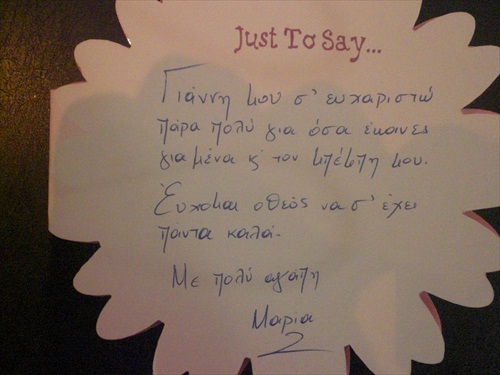 Just To Say...
Γιάννη μου σ' ευχαριστώ
πάρα πολύ για όσα έκανες
για μένα κ' τον μπέμπη μου.
Εύχομαι ο θεός να σ' έχει
πάντα καλά.
Με πολύ αγάπη
Μαρία